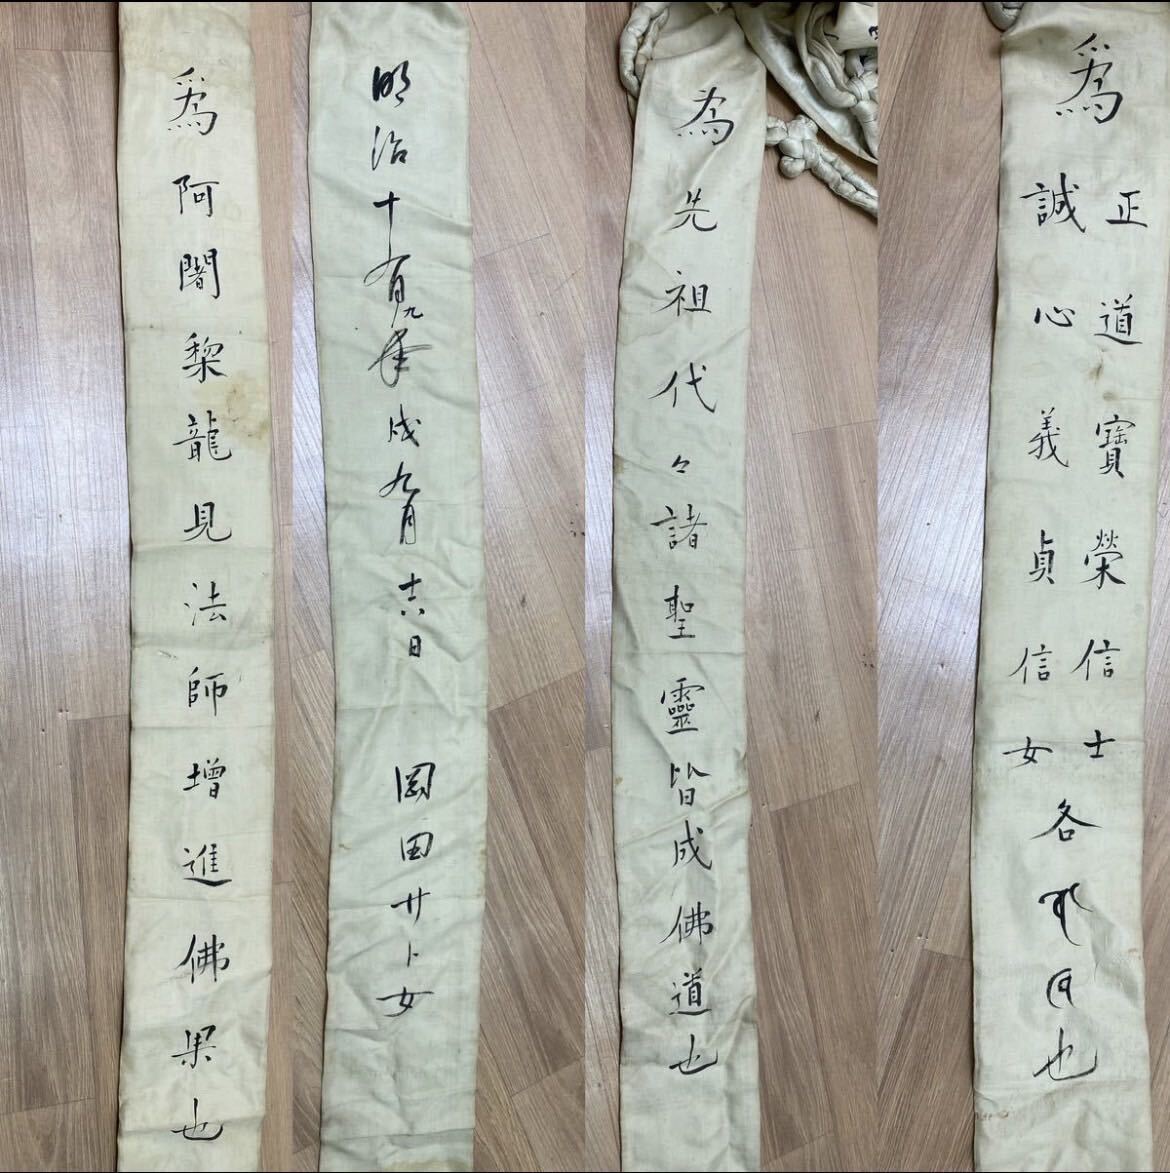 爲
正道寶榮信士
誠心義貞信女
各
也
為先祖代々諸聖靈皆成佛道也
明治十有九季戌九月十六日 岡田サト女
爲阿闍梨龍見法師増進佛果也